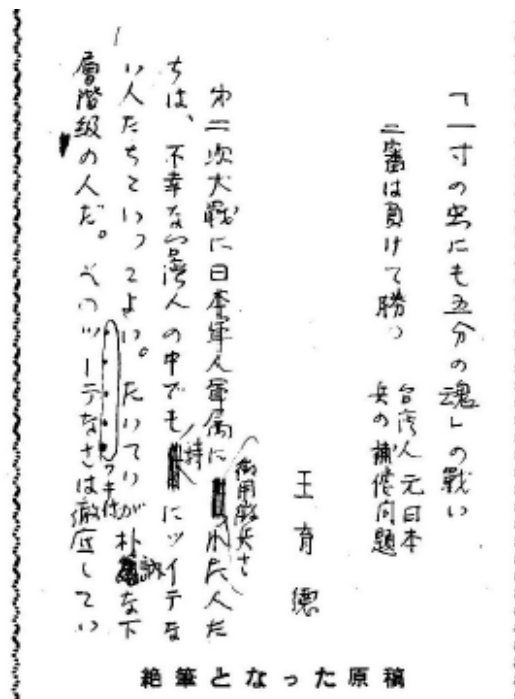 「一寸の虫にも五分の魂」の戦い
二審は負けて勝つ
台湾人元日本
兵の補償問題
王育徳
第二次大戦に日本軍人軍属に徴用徴兵された人た
ちは、不幸な台湾人の中でも特にツイテな
い人たちといってよい。たいていが朴訥な下
層階級の人だ。ツイテなさは徹底してい
ワキ点
絶筆となった原稿